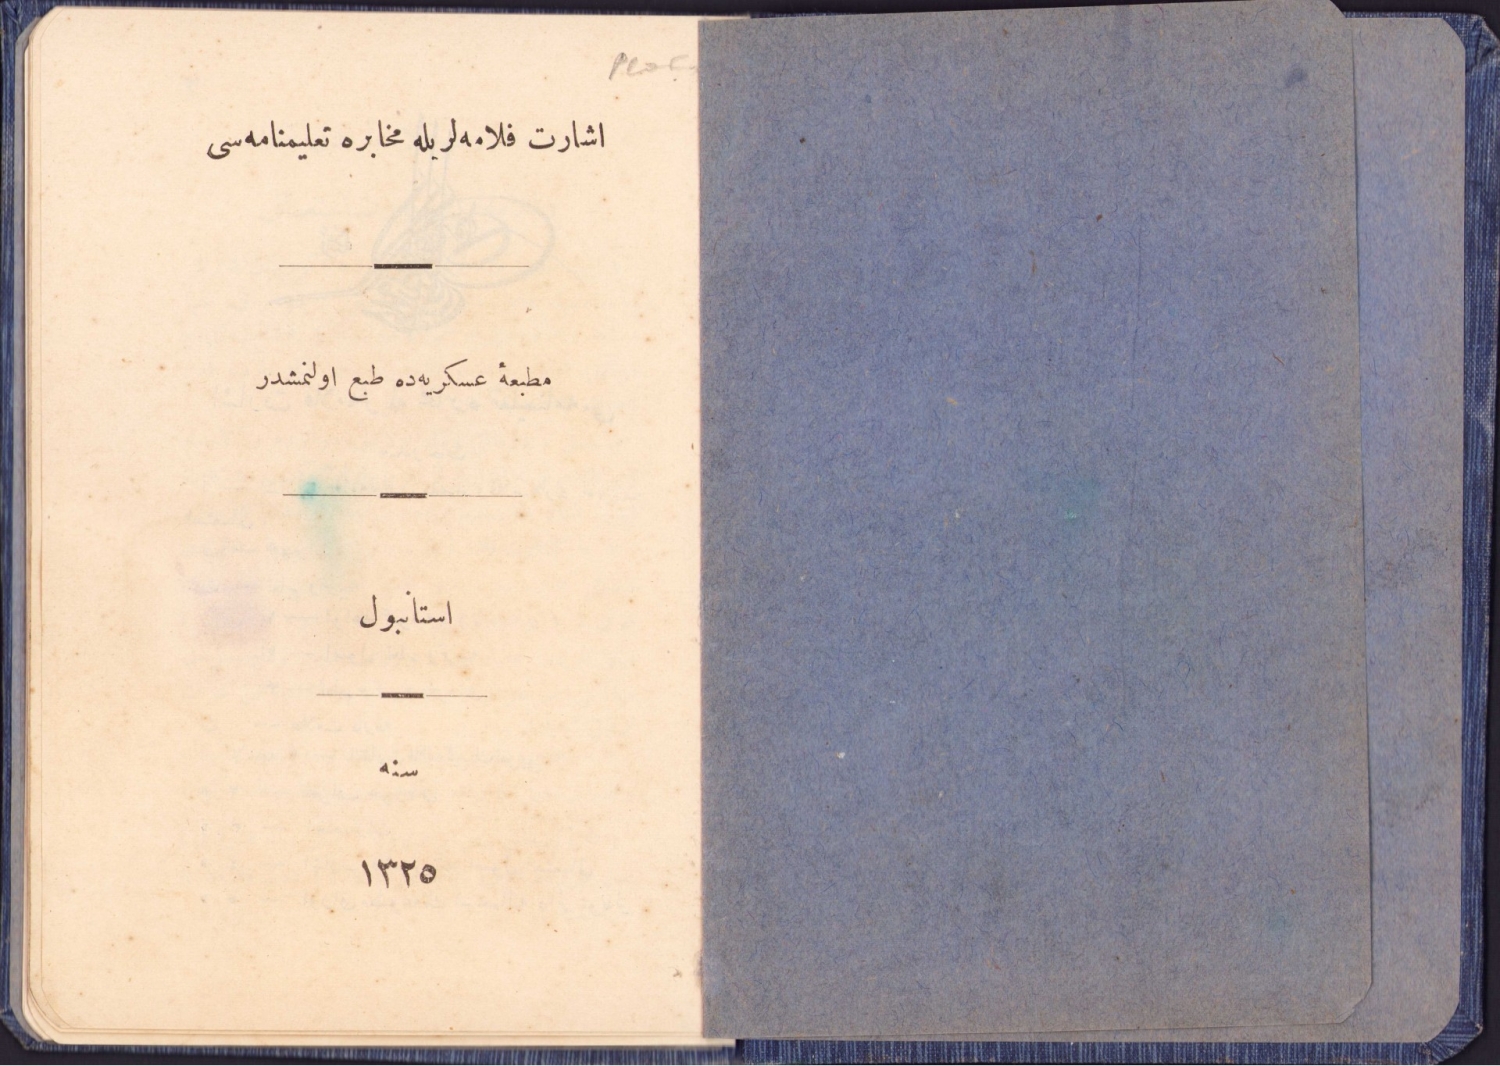 اشارت فلامه‌لریله مخابره تعلیمنامه‌سی
مطبعهٔ عسکریه‌ده طبع اولنمشدر
استانبول
سنه
١٣٢٥